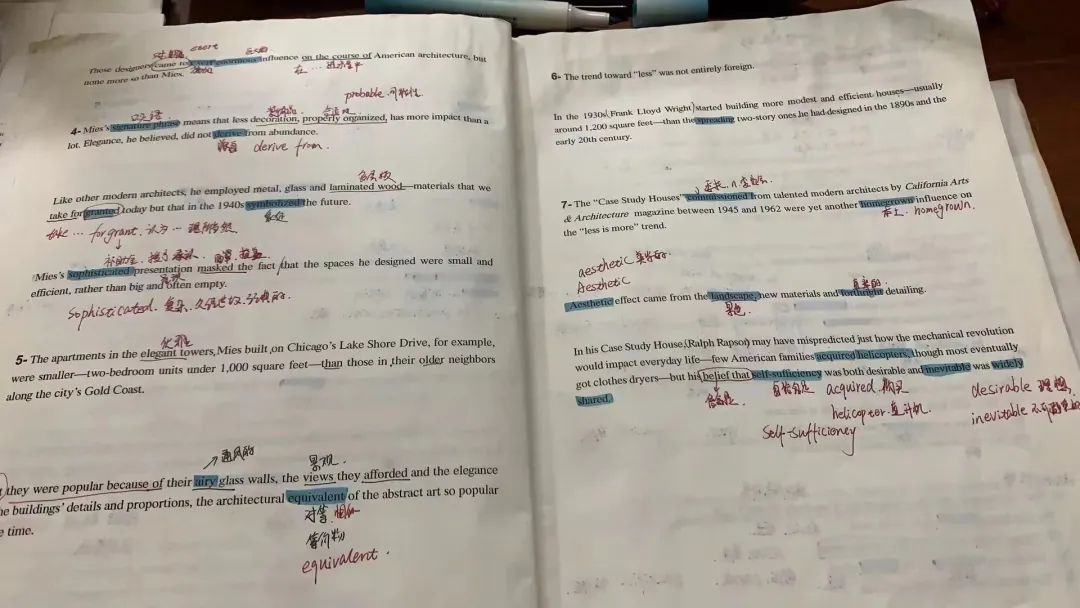 对 exert 巨大的
These designers came to exert enormous influence on the course of American architecture, but
none more so than Mies.
在…进水中
probable.可能性
口头语
4- Mies's signature phrase means that less decoration, properly organized, has more impact than a
lot. Elegance, he believed, did not derive from abundance.
derive from.
合层板
Like other modern architects, he employed metal, glass and laminated wood—materials that we
take for granted today but that in the 1940s symbolized the future.
take … for grant. 认为…理所当然
象征
补助金
Mies's sophisticated presentation masked the fact that the spaces he designed were small and
efficient, rather than big and often empty.
Sophisticated.
优雅
5- The apartments in the elegant towers Mies built on Chicago's Lake Shore Drive, for example,
were smaller—two-bedroom units under 1,000 square feet—than those in their older neighbors
along the city's Gold Coast.
通风的
景观.
t they were popular because of their airy glass walls, the views they afforded and the elegance
he buildings' details and proportions, the architectural equivalent of the abstract art so popular
e time.
对等.相似
等价物
equivalent.
6- The trend toward "less" was not entirely foreign.
In the 1930s Frank Lloyd Wright started building more modest and efficient houses—usually
around 1,200 square feet—than the spreading two-story ones he had designed in the 1890s and the
early 20th century.
7- The "Case Study Houses" commissioned from talented modern architects by California Arts
& Architecture magazine between 1945 and 1962 were yet another homegrown influence on
the "less is more" trend.
本土. homegrown.
aesthetic 美学的.
Aesthetic
直率的
Aesthetic effect came from the landscape, new materials and forthright detailing.
景色.
In his Case Study House, Ralph Rapson may have mispredicted just how the mechanical revolution
would impact everyday life—few American families acquired helicopters, though most eventually
got clothes dryers—but his belief that self-sufficiency was both desirable and inevitable was widely
shared.
自给自足 acquired.购买
desirable 理想.
helicopter.直升机.
inevitable
Self-sufficiency